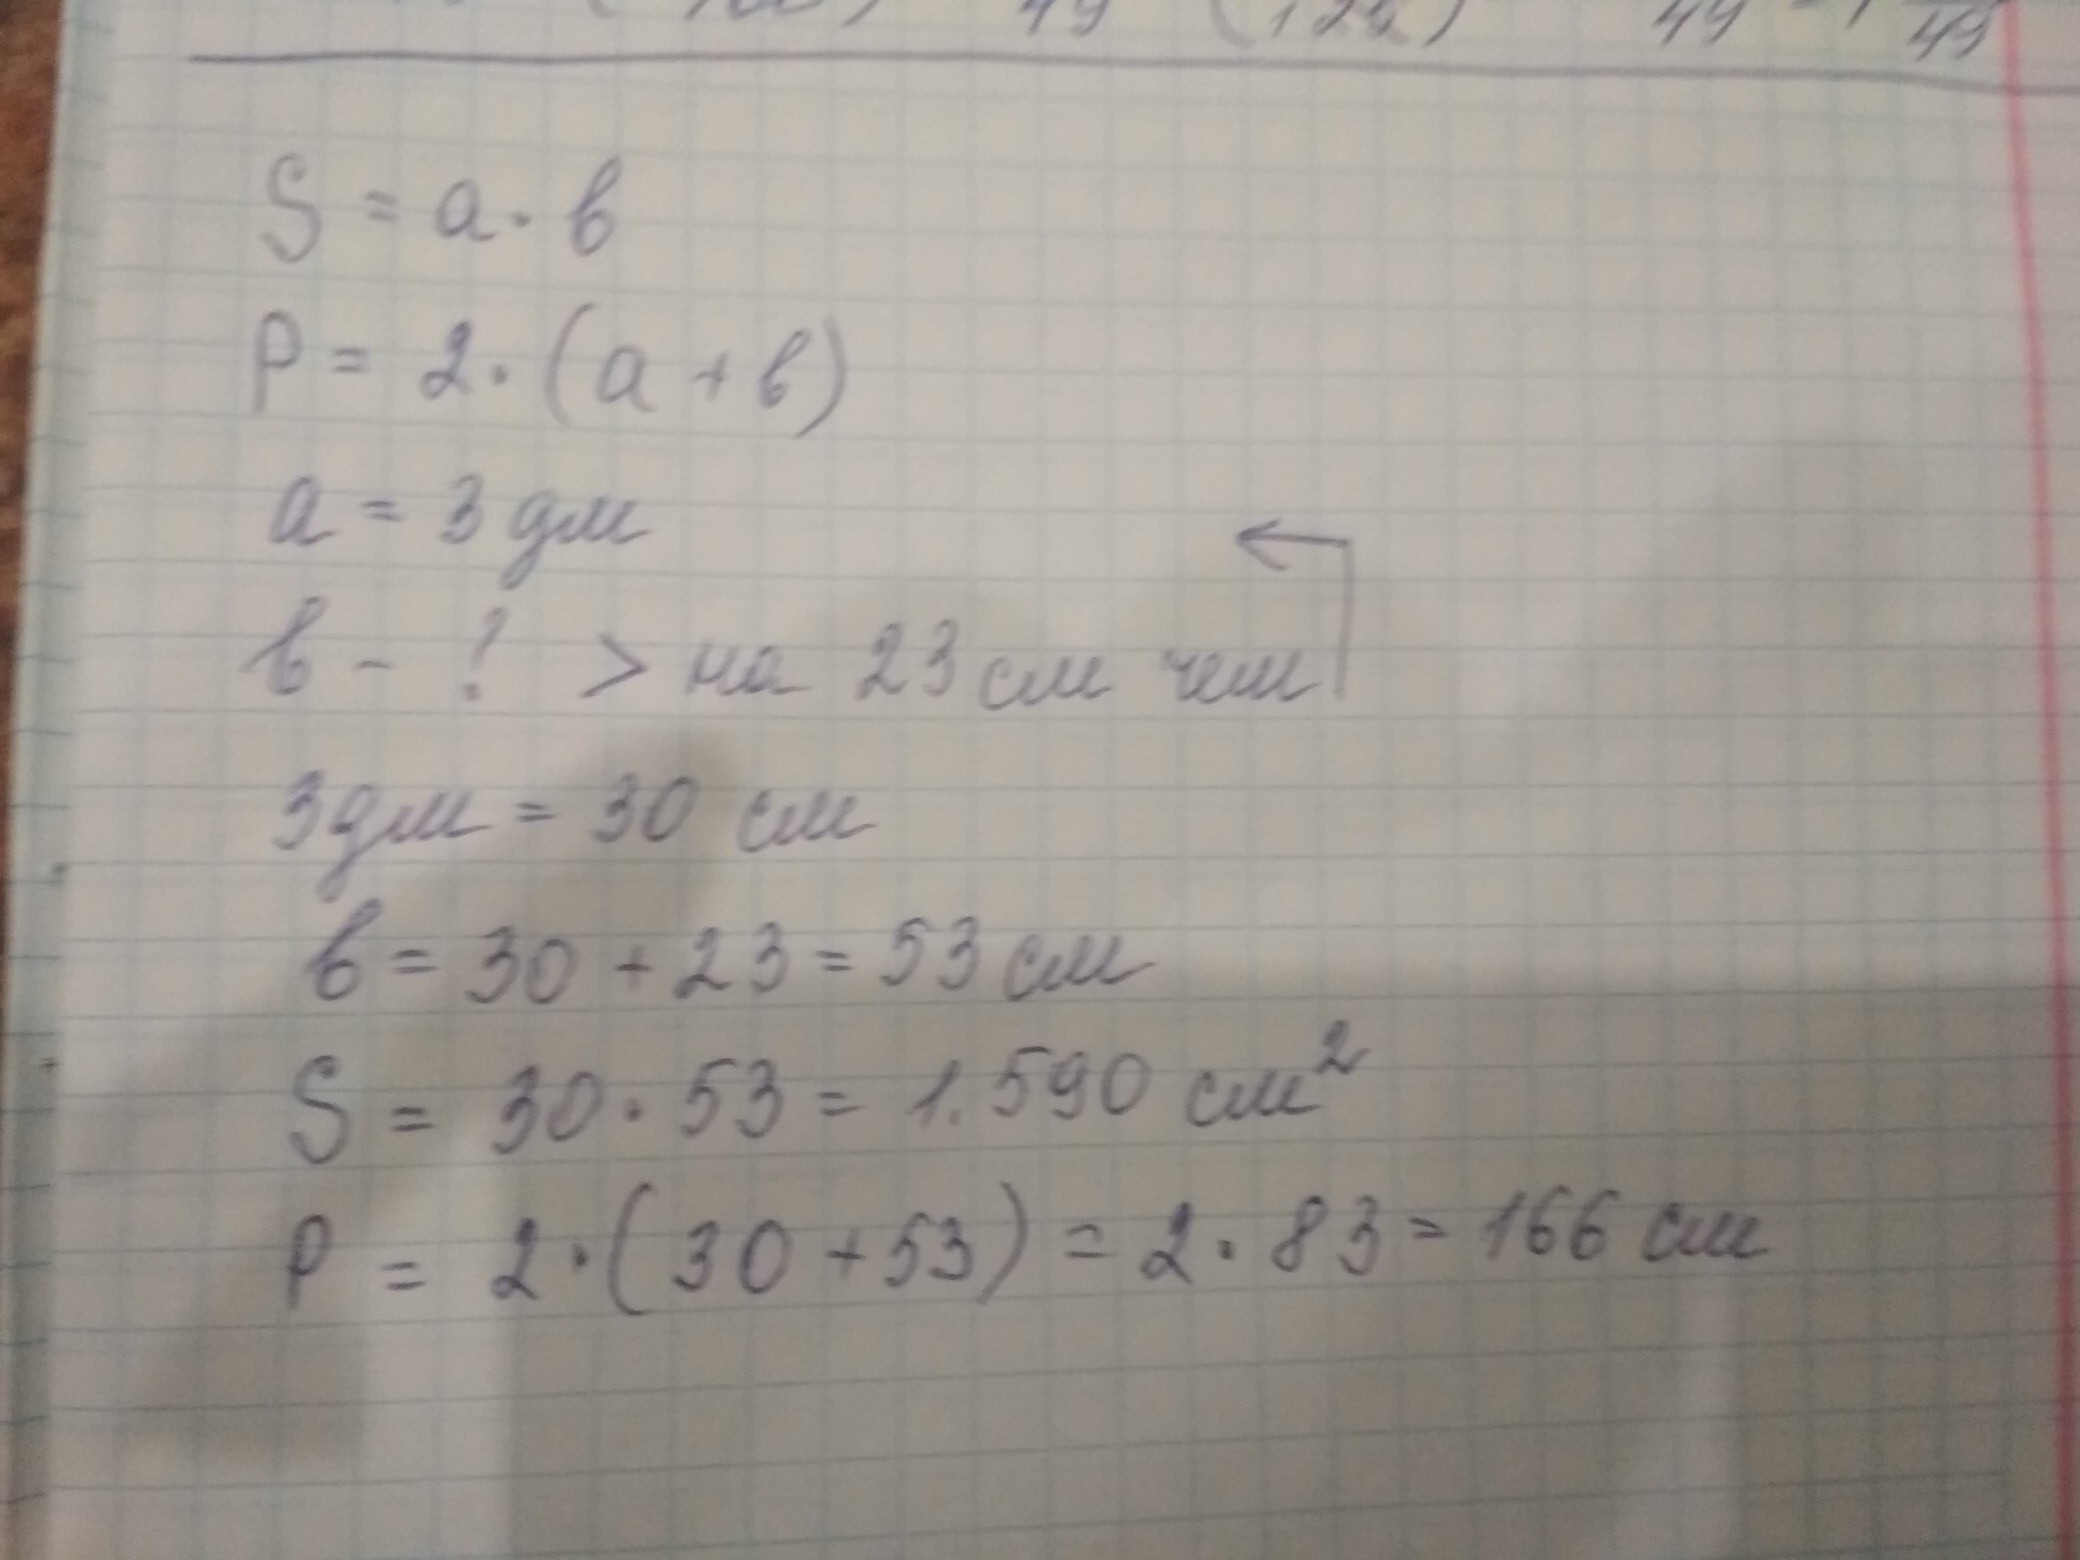 49 49 49
S = a · b
P = 2 · (a + b)
a = 3 дм
b - ? > на 23 см чем
3 дм = 30 см
b = 30 + 23 = 53 см
S = 30 · 53 = 1.590 см²
P = 2 · (30 + 53) = 2 · 83 = 166 см